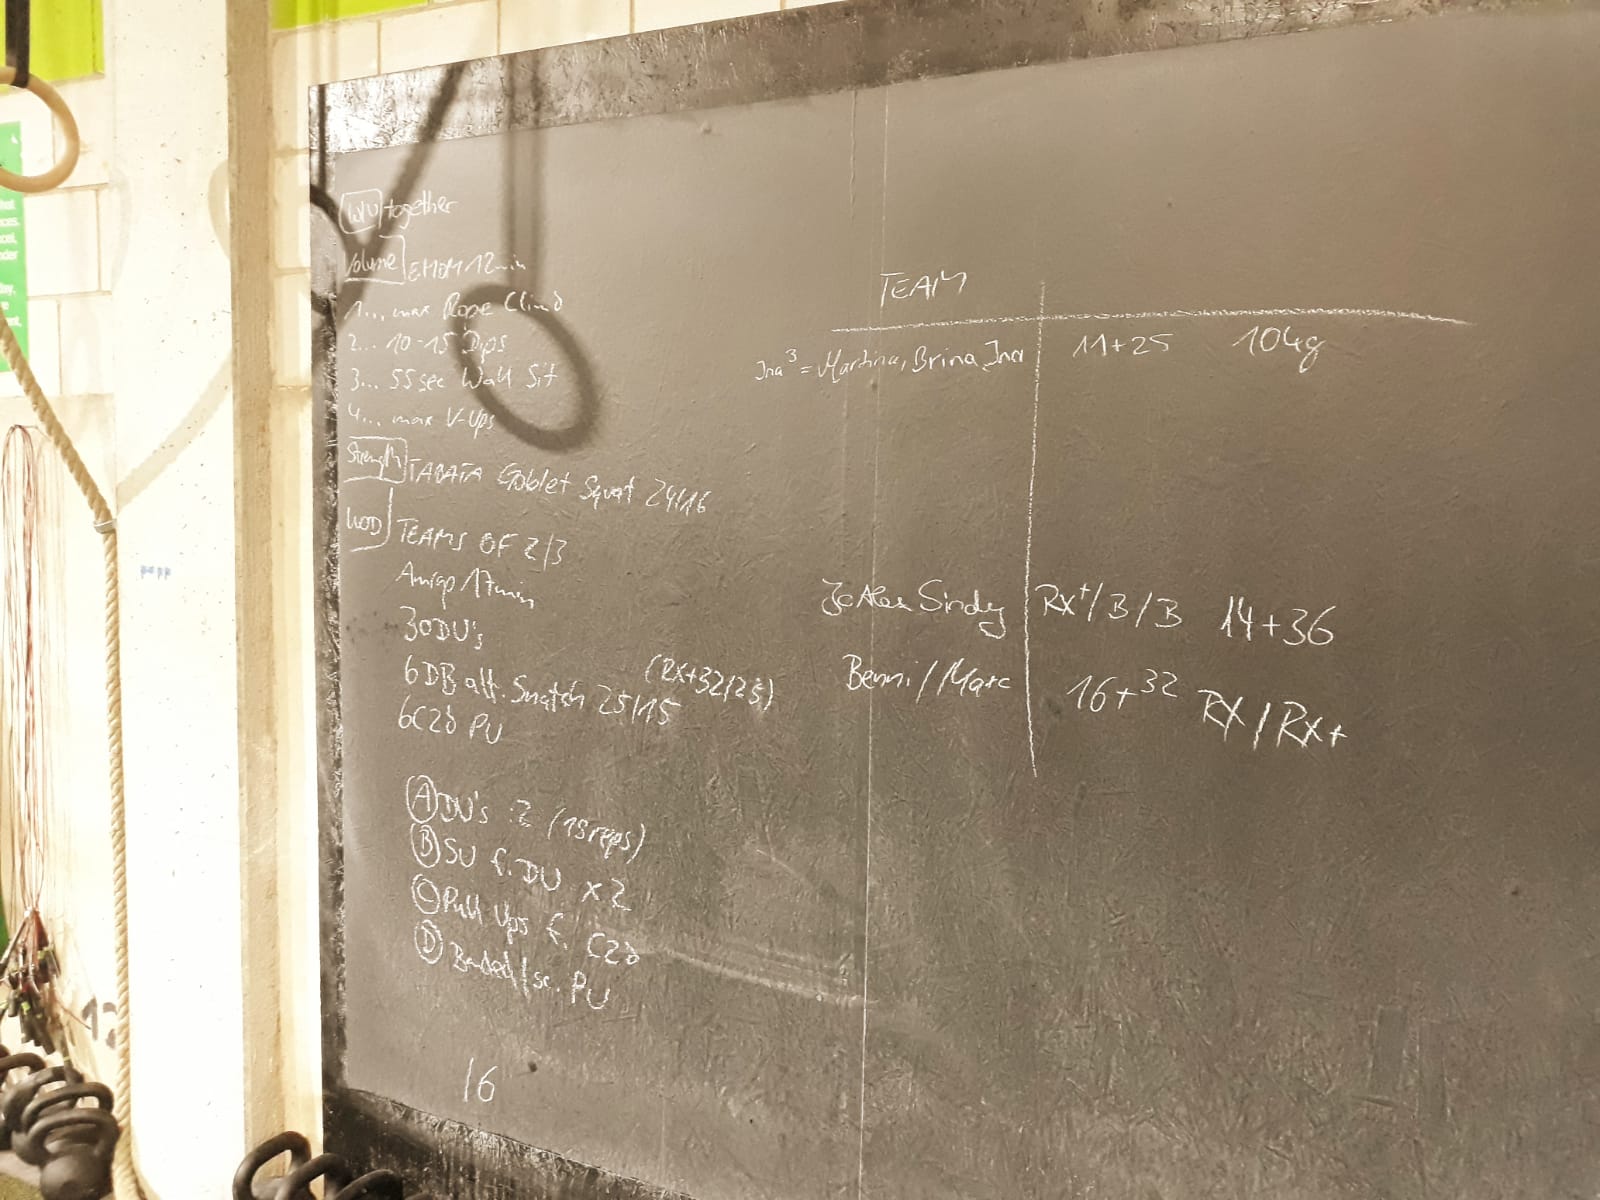 WU together
Volume EMOM 12min
1... max Rope Climb
2... 10-15 Dips
3... 55sec Wall Sit
4... max V-Ups
Strength TABATA Goblet Squat 24/16
WOD TEAMS OF 2/3
Amrap 17min
30DU's
6DB alt. Snatch 25/15 (RX+32/25)
6C2b PU
A DU's :2 (15reps)
B SU f. DU x2
C Pull Ups f. C2b
D Banded/sc. PU
16
TEAM
Ina³ = Martina, Brina, Ina 11+25 10kg
Alex Sindy RX+/B/B 14+36
Benni/Marc 16+32 RX/RX+